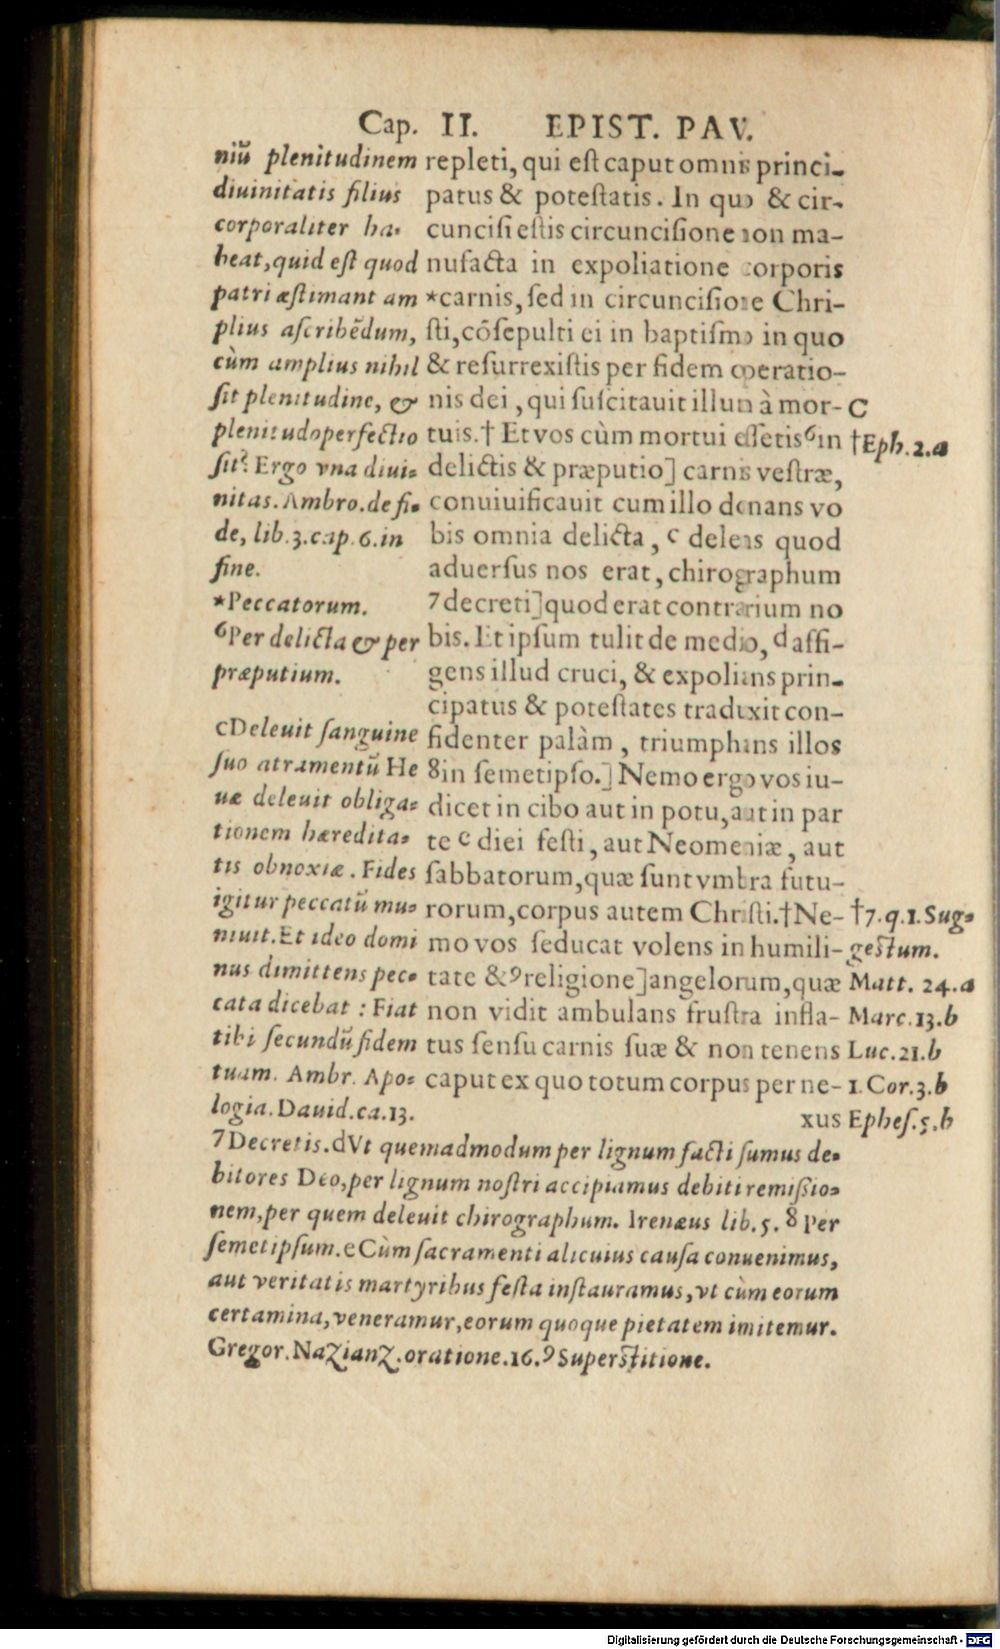 Cap. II. EPIST. PAV.
niũ plenitudinem
diuinitatis filius
corporaliter ha-
beat, quid est quod
patri æstimant am
plius ascribẽdum,
cùm amplius nihil
sit plenitudine, &
plenitudo perfectio
sit? Ergo vna diui-
nitas. Ambro. de fi-
de, lib. 3. cap. 6. in
fine.
*Peccatorum.
6Per delicta & per
præputium.
cDeleuit sanguine
suo atramentũ He
uæ deleuit obliga-
tionem hæredita-
tis obnoxiæ. Fides
igitur peccatũ mu-
niuit. Et ideo domi
nus dimittens pec-
cata dicebat : Fiat
tibi secundũ fidem
tuam. Ambr. Apo-
logia. Dauid. ca. 13.
repleti, qui est caput omnis princi-
patus & potestatis. In quo & cir-
cuncisi estis circuncisione non ma-
nufacta in expoliatione corporis
*carnis, sed in circuncisione Chri-
sti, cōsepulti ei in baptismo in quo
& resurrexistis per fidem operatio-
nis dei, qui suscitauit illum à mor-
tuis.† Et vos cùm mortui essetis 6in
delictis & præputio] carnis vestræ,
conuiuificauit cum illo donans vo
bis omnia delicta, c delens quod
aduersus nos erat, chirographum
7decreti] quod erat contrarium no
bis. Et ipsum tulit de medio, d affi-
gens illud cruci, & expolians prin-
cipatus & potestates traduxit con-
fidenter palàm, triumphans illos
8in semetipso.] Nemo ergo vos iu-
dicet in cibo aut in potu, aut in par
te c diei festi, aut Neomeniæ, aut
sabbatorum, quæ sunt vmbra futu-
rorum, corpus autem Christi.†Ne-
mo vos seducat volens in humili-
tate & 9religione] angelorum, quæ
non vidit ambulans frustra infla-
tus sensu carnis suæ & non tenens
caput ex quo totum corpus per ne-
xus
C
†Eph. 2. a
†7. q. 1. Sug-
gestum.
Matt. 24. a
Marc. 13. b
Luc. 21. b
1. Cor. 3. b
Ephes. 5. b
7Decretis. dVt quemadmodum per lignum facti sumus de-
bitores Deo, per lignum nostri accipiamus debiti remissio-
nem, per quem deleuit chirographum. Irenæus lib. 5. 8 Per
semetipsum. eCùm sacramenti alicuius causa conuenimus,
aut veritatis martyribus festa instauramus, vt cùm eorum
certamina, veneramur, eorum quoque pietatem imitemur.
Gregor. Nazianz. oratione. 16. 9 Superstitione.
Digitalisierung gefördert durch die Deutsche Forschungsgemeinschaft - DFG